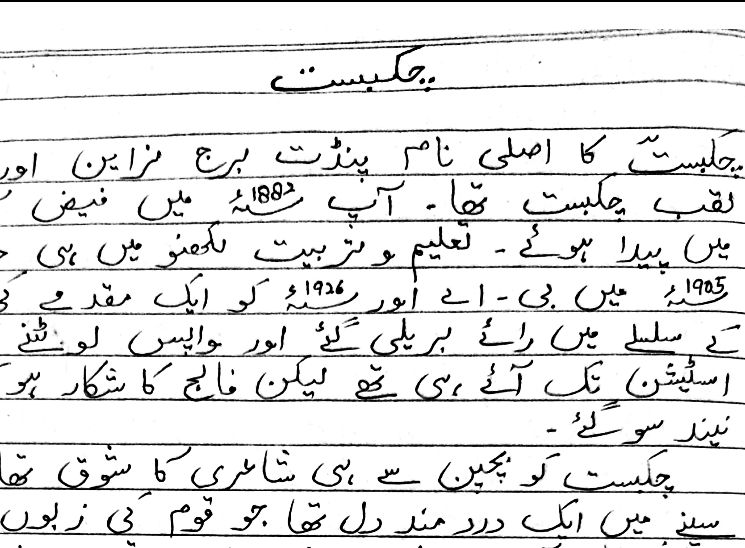 چکبست
چکبست کا اصلی نام پنڈت برج نراین اور
لقب چکبست تھا۔ آپ 1882ء میں فیض
میں پیدا ہوئے۔ تعلیم و تربیت لکھنو میں ہی
1905ء میں بی۔اے اور 1926ء کو ایک مقدمے کی
کے سلسلے میں رائے بریلی گئے اور واپس لوٹنے
اسٹیشن تک آئے ہی تھے لیکن فالج کا شکار ہو
نیند سو گئے۔
چکبست کو بچپن سے ہی شاعری کا شوق تھا
سینے میں ایک درد مند دل تھا جو قوم کی زبوں